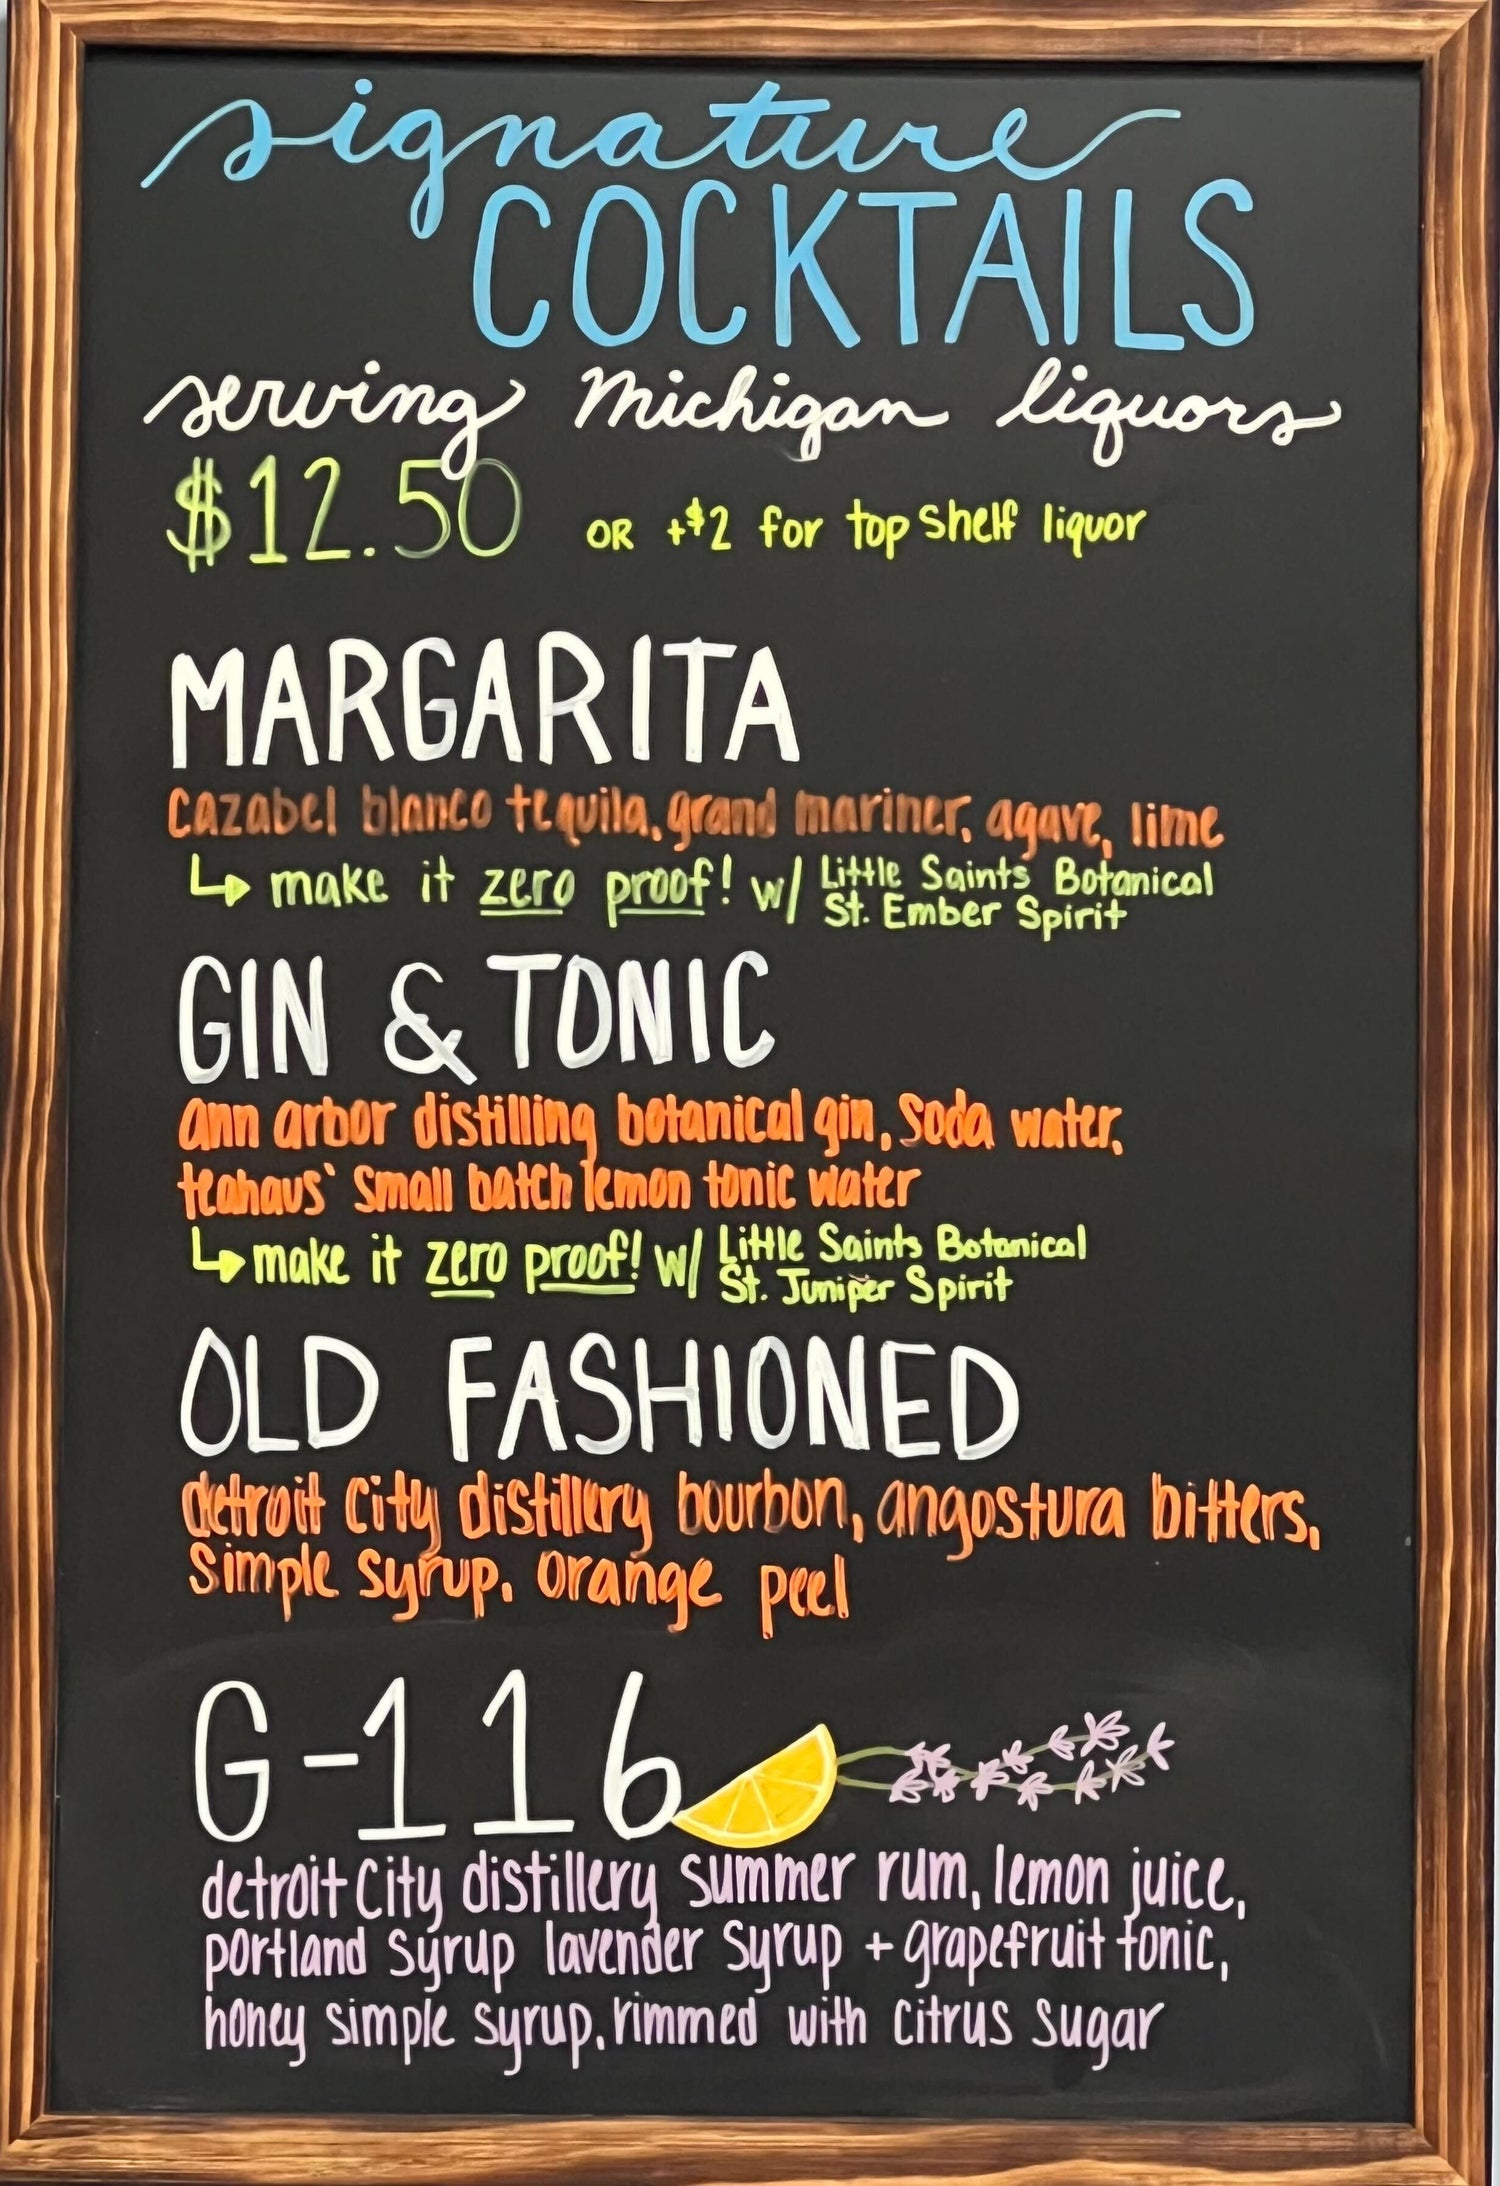 signature
COCKTAILS
serving Michigan liquors
$12.50 OR +$2 for top shelf liquor
MARGARITA
cazabel blanco tequila, grand mariner, agave, lime
↳ make it zero proof! w/ Little Saints Botanical
St. Ember Spirit
GIN & TONIC
ann arbor distilling botanical gin, soda water,
teahaus' small batch lemon tonic water
↳ make it zero proof! w/ Little Saints Botanical
St. Juniper Spirit
OLD FASHIONED
detroit city distillery bourbon, angostura bitters,
simple syrup, orange peel
G-116
detroit city distillery summer rum, lemon juice,
portland syrup lavender syrup + grapefruit tonic,
honey simple syrup, rimmed with citrus sugar